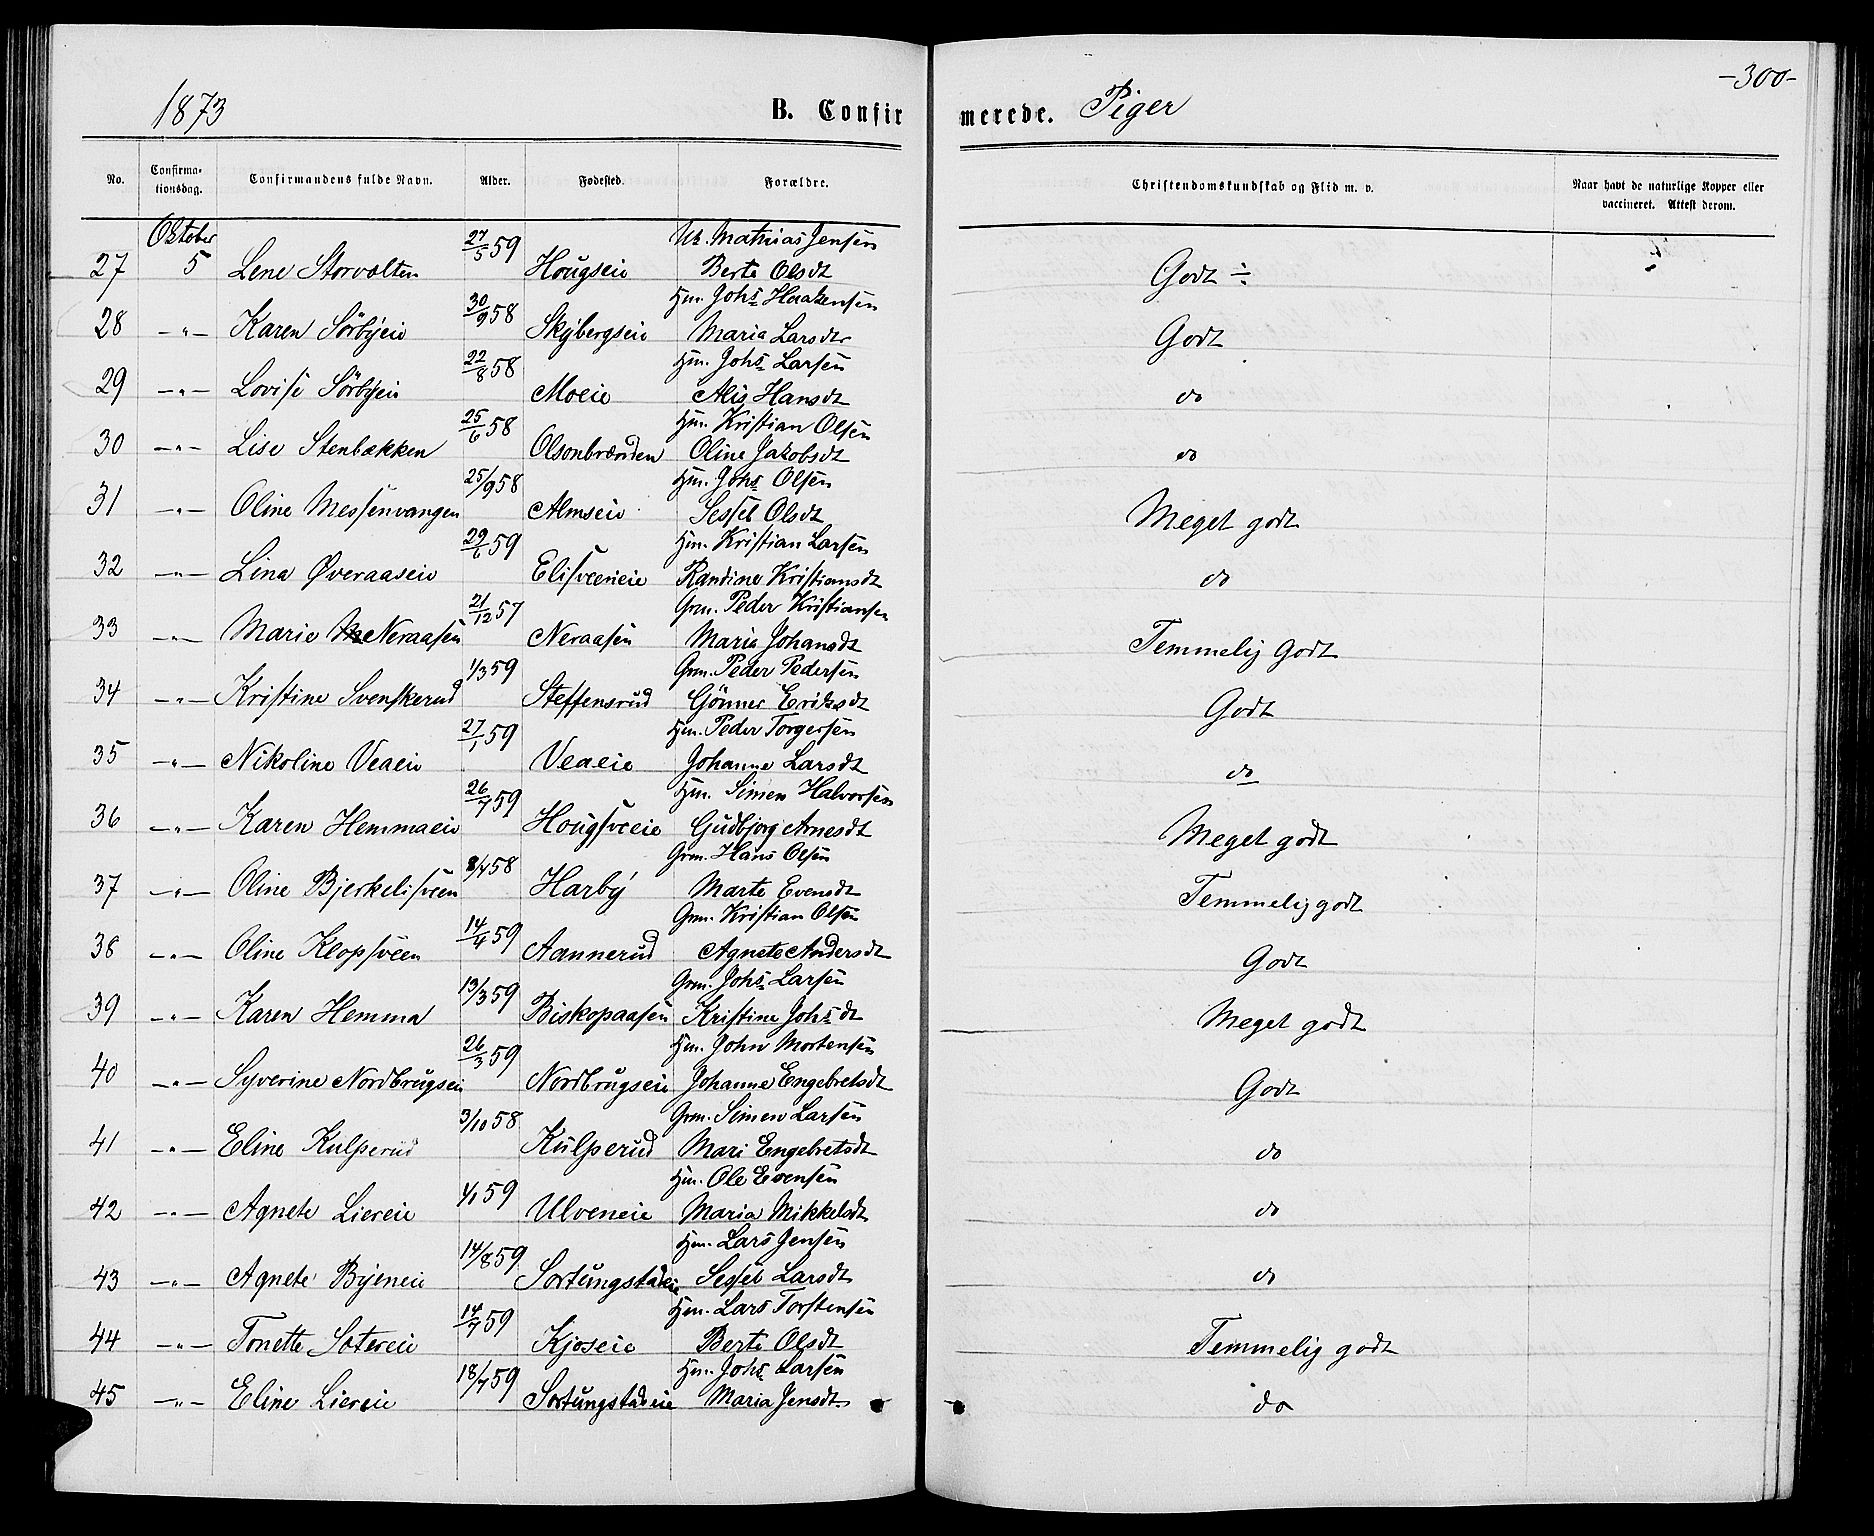 -300-
1873 B. Confirmerede. Piger
No. Confirmationsdag. Confirmandens fulde Navn. Alder. Fødested. Forældre. Christendomskundskab og Flid m. v. Naar havt de naturlige Kopper eller vaccineret. Attest derom.
Oktober 27/5 59 Mathias Jensen
27 5 Lene Storvolten Hougseie Berte Olsdt Godt ÷
30/9 58 Hm. Johs Haakensen
28 -"- Karen Sörbyeie Skybergseie Maria Larsdtr Godt
22/8 58 Hm. Johs Larsen
29 -"- Lovise Sörbyeie Moeie Alis Hansdt do
25/6 58 Hm. Kristian Olsen
30 -"- Lise Stenbækken Olsonbrænden Oline Jakobsdt do
25/9 58 Hm. Johs Olsen
31 -"- Oline Messenvangen Almseie Sessel Olsdt Meget godt
29/6 59 Hm. Kristian Larsen
32 -"- Lina Øveraaseie Elisveeneie Randine Kristiansdt do
21/12 57 Grm. Peder Kristiansen
33 -"- Marie Neraasen Neraasen Maria Johansdt Temmelig godt
1/3 59 Grm. Peder Pedersen
34 -"- Kristine Svenskerud Steffensrud Gönner Eriksdt Godt
27/1 59 Hm. Peder Torgersen
35 -"- Nikoline Veaeie Veaeie Johanne Larsdt do
26/7 59 Hm. Simen Halvorsen
36 -"- Karen Hemmaeie Hougsveeie Gudbjorg Arnesdt Meget godt
8/4 58 Grm. Hans Olsen
37 -"- Oline Bjerkelisveen Harby Marte Evensdt Temmelig godt
14/4 59 Grm. Kristian Olsen
38 -"- Oline Klopsveen Aannerud Agnete Andersdt Godt
13/3 59 Grm. Johs Larsen
39 -"- Karen Hemma Biskopaasen Kristine Johsdt Meget godt
26/3 59 Hm. John Mortensen
40 -"- Syverine Nordbrugseie Nordbrugseie Johanne Engebretsdt Godt
3/10 58 Grm. Simen Larsen
41 -"- Eline Kulperud Kulperud Mari Engebretsdt do
1/1 59 Hm. Ole Evensen
42 -"- Agnete Liereie Ulveneie Maria Mikkelsdt do
14/8 59 Hm. Lars Jensen
43 -"- Agnete Byeneie Sortungstadeie Sessel Larsdt do
14/7 59 Hm. Lars Torstensen
44 -"- Tonette Sotereie Kjoseie Berte Olsdt Temmelig godt
18/7 59 Hm. Johs Larsen
45 -"- Eline Liereie Sortungstadeie Maria Jensdt do